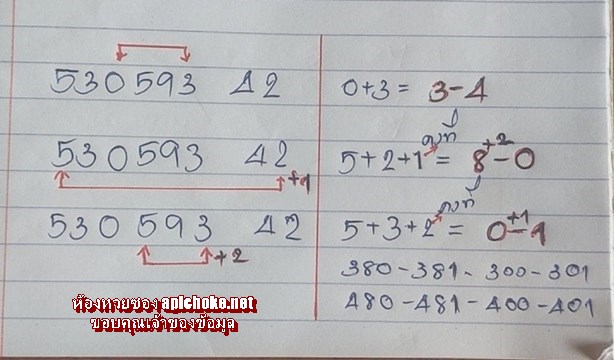 530593 42
0+3 = 3-4
คงที่ +2
530593 42
5+2+1 = 8-0
+1
คงที่ +1
530593 42
5+3+2 = 0-1
+2
380-381-300-301
480-481-400-401
ห้องหวยซอง apichoke.net
ขอบคุณเจ้าของข้อมูล